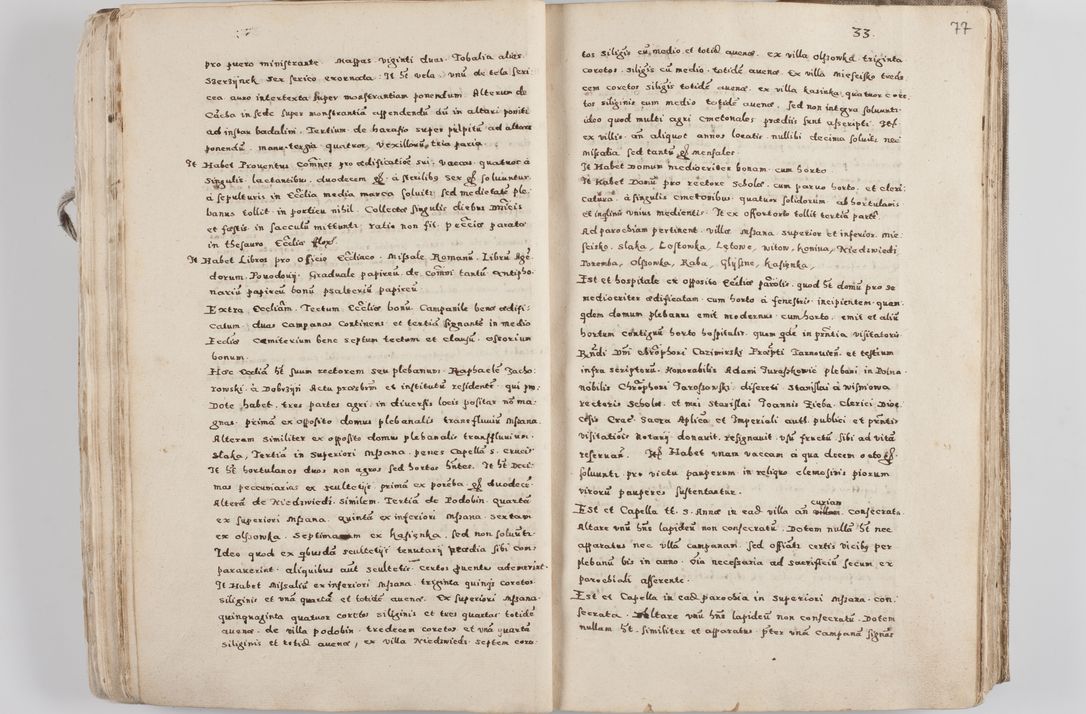 pro puero ministrante. Mappas viginti duas. Tobalia alias
Szerzynek sex serico exornata. It hẽt vela unũ de tela seri
cea auro intertexta super monstrantiam ponendum. Alterum de
in sede super monstrantiã appendendũ dũ in altari poniti
ad instar badalini. Tertium de harasio super pulpitũ ad altare
ponendũ. manutergia quatuor, vexillorũ tria paria
It Habet Proventus Com̃nes pro ædificatiõe sui, vaccas quatuor à
singulis lactantibus duodecem à sterilibus sex soluuntur
à sepulturis in Ecclia media marca soluitr sed medietatẽ ple
banus tollit in porticu nihil. Collectæ singulis diebus Dñicis
et festis in sacculũ mittuntr ratio non fit peccia parata
in thesauro Eccliæ
It Habet Libros pro officio Eccliaco. Missale Romanũ. Librũ Agẽ
dorum. Graduale papireũ de com̃i tantũ Antipho
nariũ papireũ bonũ psalteriũ papireũ
Extra Eccliam. Tectum Eccliæ bonũ. Campanile bene ædifi
catum duas campanas continens et tertiã signantẽ in medio
Eccliæ Cæmiterium bene septum tectum et clausũ. ossorium
bonum.
Hæc Ecclia hẽt suum rectorem seu plebanum Raphaelẽ Zacho
rowski à Dobrzyn Actu præsbrm et institutũ residentẽ qui pro
Dote habet tres partes agri in diversis locis positar nõ ma
gnas primã ex opposito domus plebanalis transfluviũ Mszana.
Alteram similiter ex opposito domus plebanalis transfluvium
slaka, Tertiã in superiori Mszana penes Capellã S. Crucis
It hẽt hortulanos duos non agros sed hortos hñtes. It hẽt Deci
mas peccuniarias ex scultetijs primã ex porẽba duodecẽ
Alterã de Niedzwiedz. similem Tertiã de Podobin quartã
ex superiori Mszana quintã ex inferiori Mszana sextam
ex olszowka Septimam ex Kasinka sed non soluũtr
Ideo quod ex qbusdã scultetijs tenutarij prædia sibi com
paraverint aliquibus aũt scultetis certos puentus ademerint
It Habet Missaliũ ex inferiori Mszana triginta quinqs coretos
siliginis et unã quartã et totidẽ auenæ. Ex superiori Mszana
quinquaginta quatuor coretos siliginis et tres quartas totidẽ
auenæ de villa podobin tredecem coretos et unã quartã
siliginis et totid auenæ, ex villa Niedzwiedz septem core
33. 77
tos siligis cũ medio et totid auenæ. ex villa Olszowka triginta
coretos siligis cũ medio totidẽ auenæ. Ex villa Miescisko trede
cem coretos siligis totidẽ auenæ. ex villa kasinka quatuor core
tos siliginis cum medio totidẽ auenæ. sed non integra soluunt
ideo quod multi agri cmetonales prædiis sunt ascripti. It
ex villis añ aliquot annos locatis nullibi decima soluitr nec
missalia sed tantũ mensales
It Habet Domum mediocriter bonam cum horto
It Habet Domũ pro rectore scholæ cum paruo horto, et cleri
caturã à singulis cmetonibus quatuor solidorum ab hortulanis
et inqlinis unius medientis. It ex offertorio tollit tertiã partẽ
Ad parochiam pertinent villæ Mszana superior et inferior. mie
scisko, slaka, Lostowka, Lętowe, witow, konina, Niedzwiedz,
Poremba, Olszowka, Raba, Glysne, Kasynka,
Est et hospitale ex opposito Eccliæ parolis quod hẽt domũ pro se
mediocriter ædificatam cum horto à fenestris incipientem quan
qdem domum plebanus emit modernus cum horto emit et aliũ
hortum contiguũ horto hospitalis quem qdẽ in pñtia visitatoris
Rñdi Dñi Chrophori Cazimirski Præpti Tarnovieñ. et testium
infra scriptorũ. Honorabilis Adami Juraszkowic plebani in Dobra
nobilis Chrophori Jarossowski discreti Stanislai à wisniowa
rectoris scholæ et mei Stanislai Joannis Zieba Clerici Diœc
cesis Crac Sacra Aplica et Imperiali auth. publici et pñtis
visitatiõis Notarij donauit, resignauit usũ fructũ sibi ad vitã
reseruañ. It Habet unam vaccam à qua decem octo
soluuntr pro victu pauperum in reliquo elemosinis piorum
virorũ pauperes sustentantur.
curiam
Est et Capella tt. S. Annæ in ead villa añ consecrata
Altare unũ hñs lapideũ non consecratũ Dotem nullã hẽt nec
apparatus nec ullã campanam sed officiatr certis vicibs per
plebanũ bis in anno. Oia necessaria ad sacrificiũ secum ex
parochiali afferente.
Est et Capella in ead parochia in superiori Mszana con
secrata Altare unũ hñs lapideũ non consecratũ Dotem
nullam hẽt similiter et apparatus pter unã campanã signãs